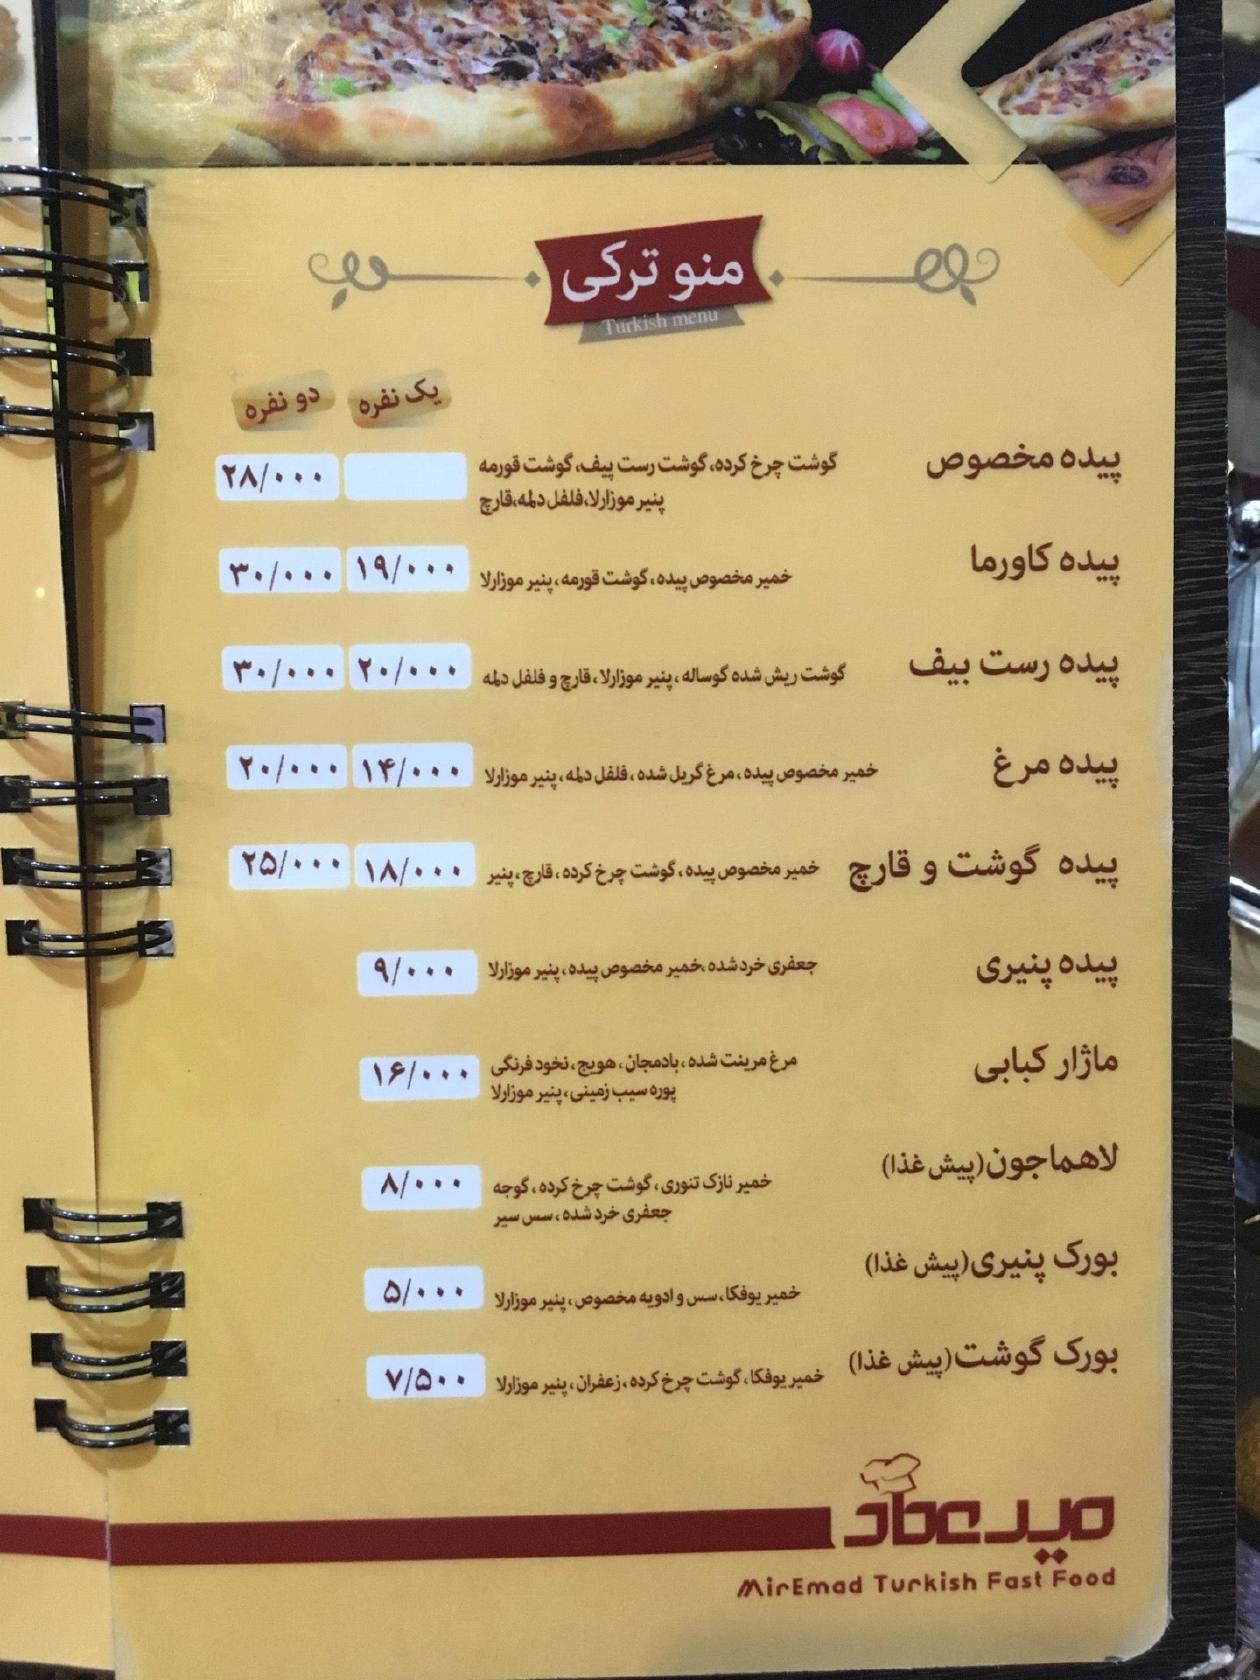 منو ترکی
Turkish menu
یک نفره دو نفره
پیده مخصوص گوشت چرخ کرده، گوشت رست پیف، گوشت قورمه ۲۸/۰۰۰
پنیر موزارلا،فلفل دلمه،قارچ
پیده کاورما خمیر مخصوص پیده، گوشت قورمه، پنیر موزارلا ۱۹/۰۰۰ ۳۰/۰۰۰
پیده رست بیف گوشت ریش شده گوساله، پنیر موزارلا، قارچ و فلفل دلمه ۲۰/۰۰۰ ۳۰/۰۰۰
پیده مرغ خمیر مخصوص پیده، مرغ گریل شده، فلفل دلمه، پنیر موزارلا ۱۴/۰۰۰ ۲۰/۰۰۰
پیده گوشت و قارچ خمیر مخصوص پیده، گوشت چرخ کرده، قارچ، پنیر ۱۸/۰۰۰ ۲۵/۰۰۰
پیده پنیری جعفری خرد شده،خمیر مخصوص پیده، پنیر موزارلا ۹/۰۰۰
ماژار کبابی مرغ مرینت شده، بادمجان، هویج، نخود فرنگی ۱۶/۰۰۰
پوره سیب زمینی، پنیر موزارلا
لاهماجون(پیش غذا) خمیر نازک تنوری، گوشت چرخ کرده، گوجه ۸/۰۰۰
جعفری خرد شده، سس سیر
بورک پنیری(پیش غذا) خمیر یوفکا، سس و ادویه مخصوص، پنیر موزارلا ۵/۰۰۰
بورک گوشت(پیش غذا) خمیر یوفکا، گوشت چرخ کرده، زعفران، پنیر موزارلا ۷/۵۰۰
میرعماد
MirEmad Turkish Fast Food